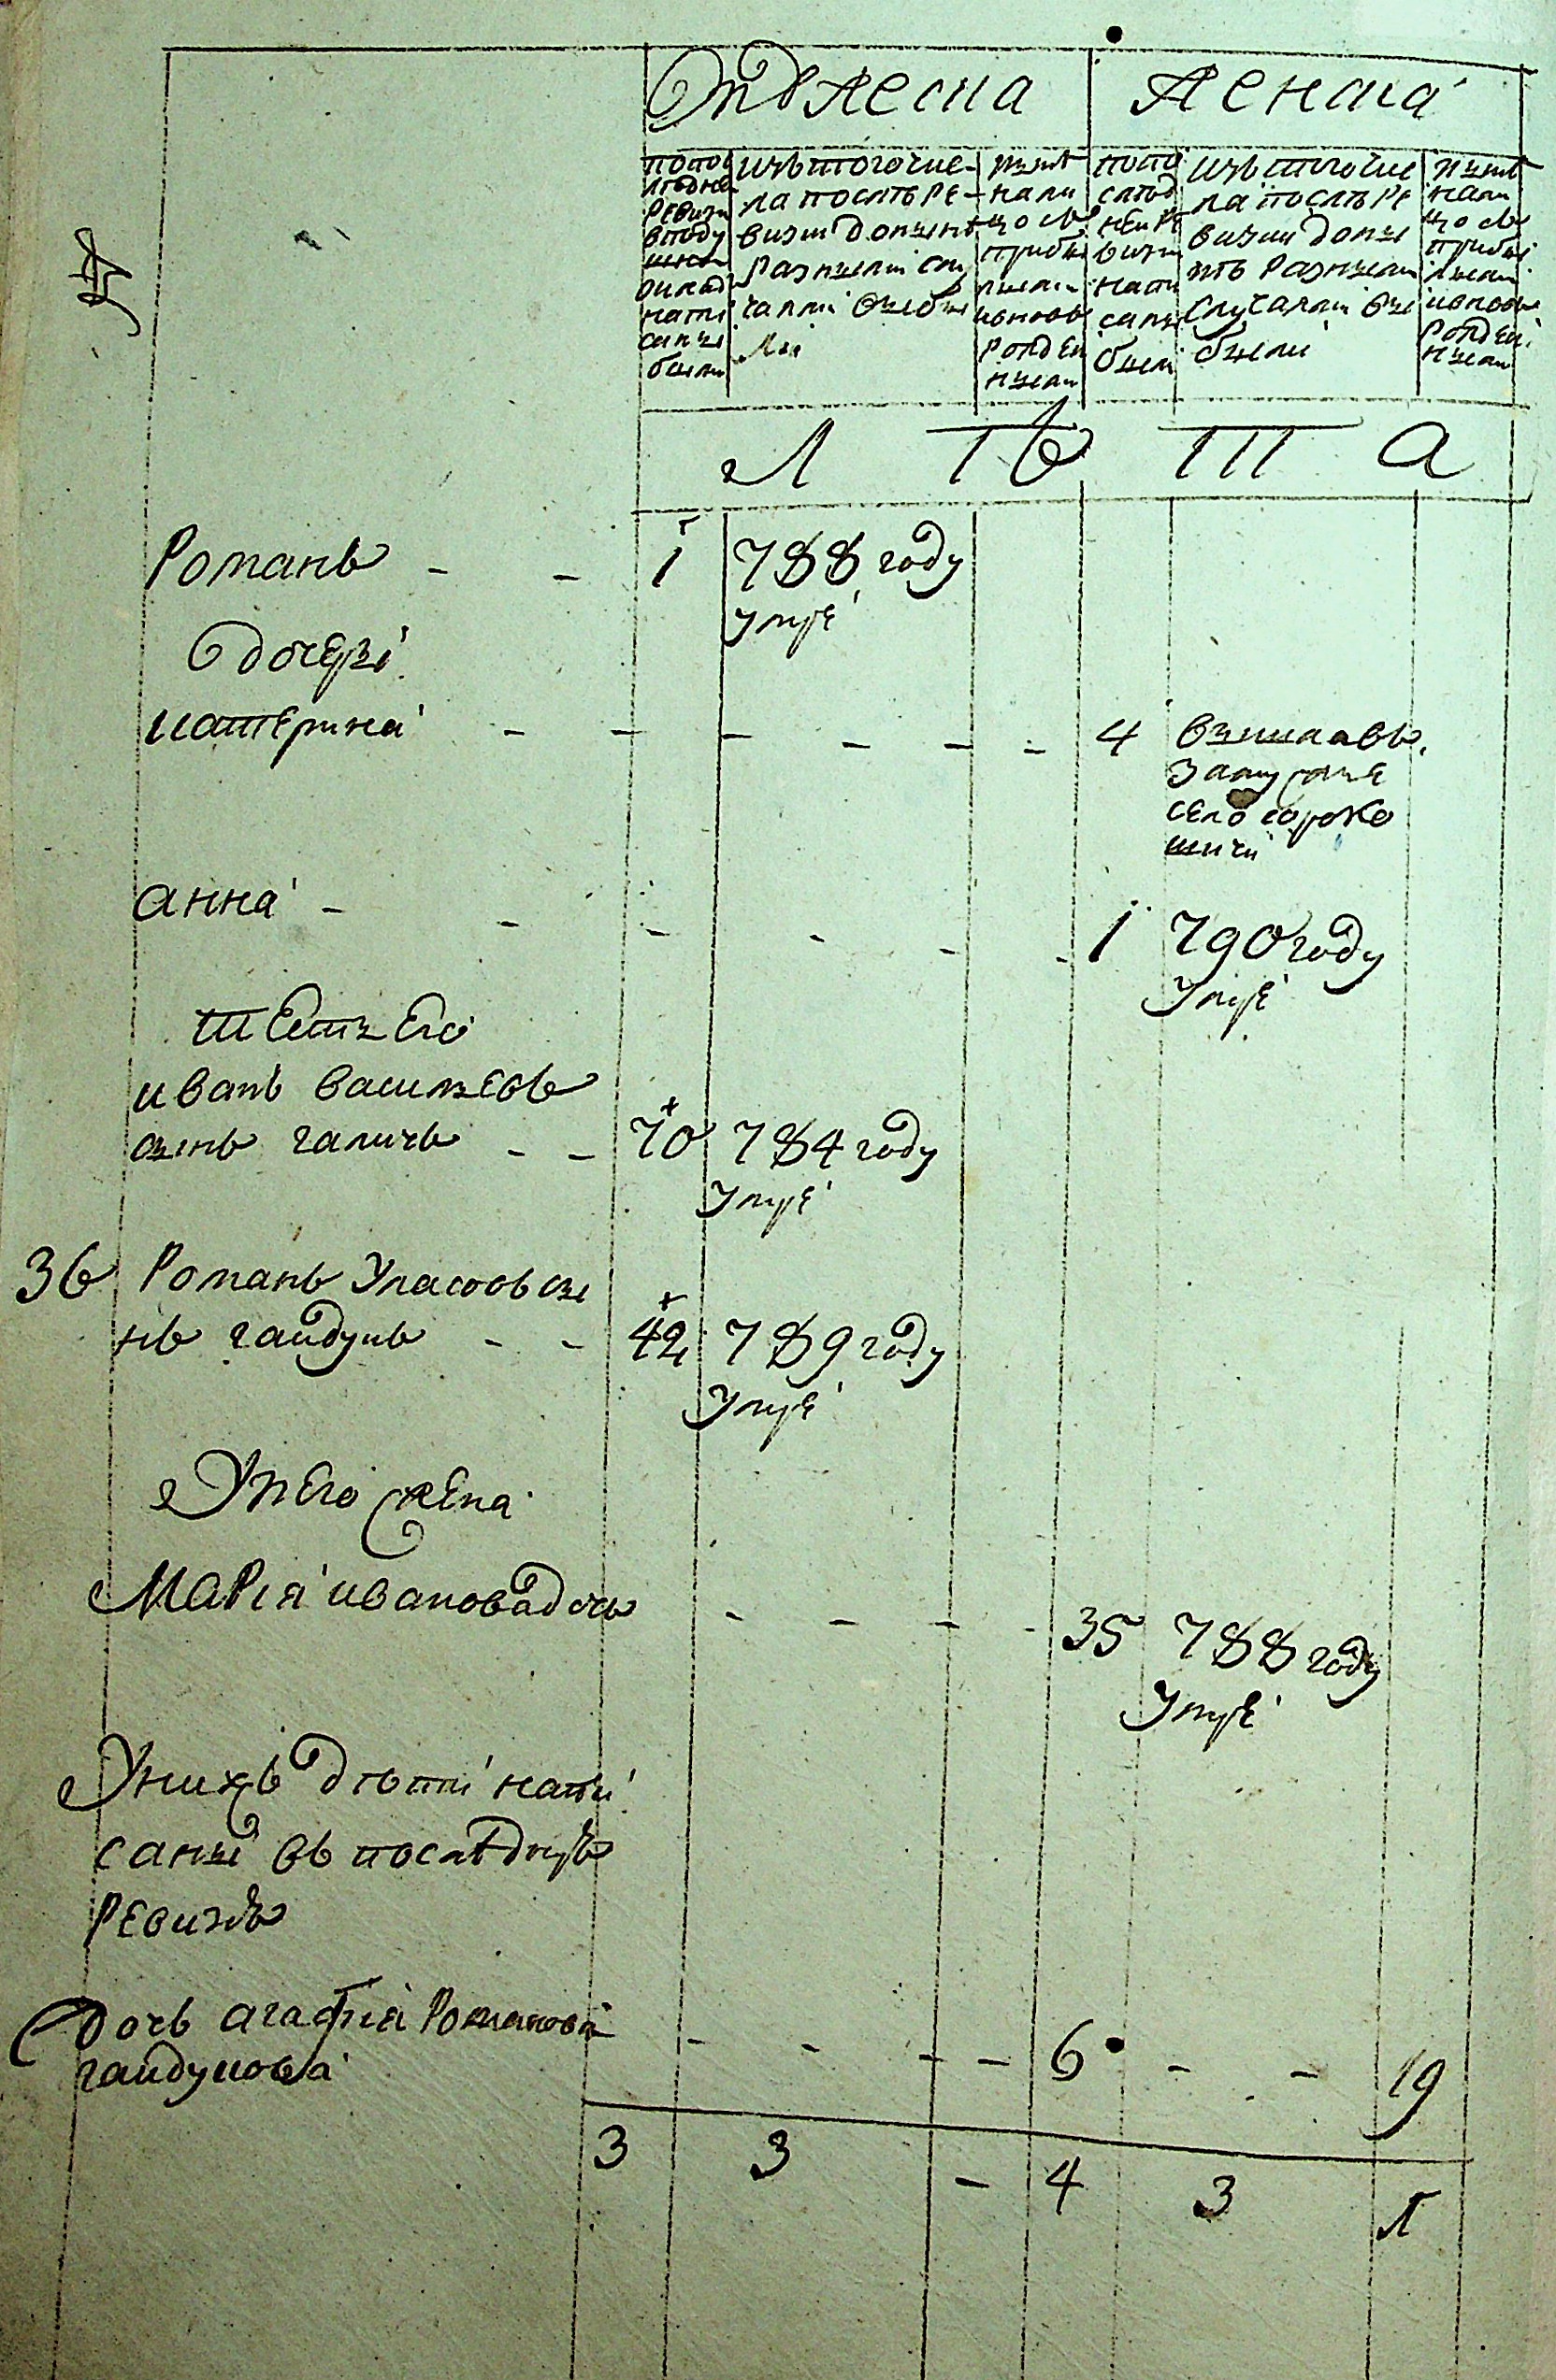 Мужеска Женска
По по
следне
ревизи
в поду
шном
оклад
напи
саны
были
изъ того чис
ла после ре
визии доныне
разными слу
чаями выбы
ли
ныне
нали
цо съ
прибы
лыми
и вновь
рожден
ными
по по
след
ней ре
визи
напи
саны
были
изъ того чис
ла после ре
визии доны
нѣ разными
случаями вы
были
ныне
нали
цо съ
прибы
лыми
и вновь
рожден
ными
Л ѣ т а
Романъ - - 1 788 году
умре
дочери
катерина - - - - - - 4 взамужъ
село Сороко
шичи
анна - - - - - - 1 790 году
умре
тесть его
иванъ васильевъ
сынъ галичъ - - 70 784 году
умре
36 Романъ Уласовъ сы
нъ гайдукъ - - 42 789 году
умре
У него жена
Мария иванова дочь - - - - 35 788 году
умре
У нихъ дѣти напи
саны въ последнѣй
ревизѣ
дочь агафия Романова
гайдукова - - - - 6 - - 19
3 3 - 4 3 1